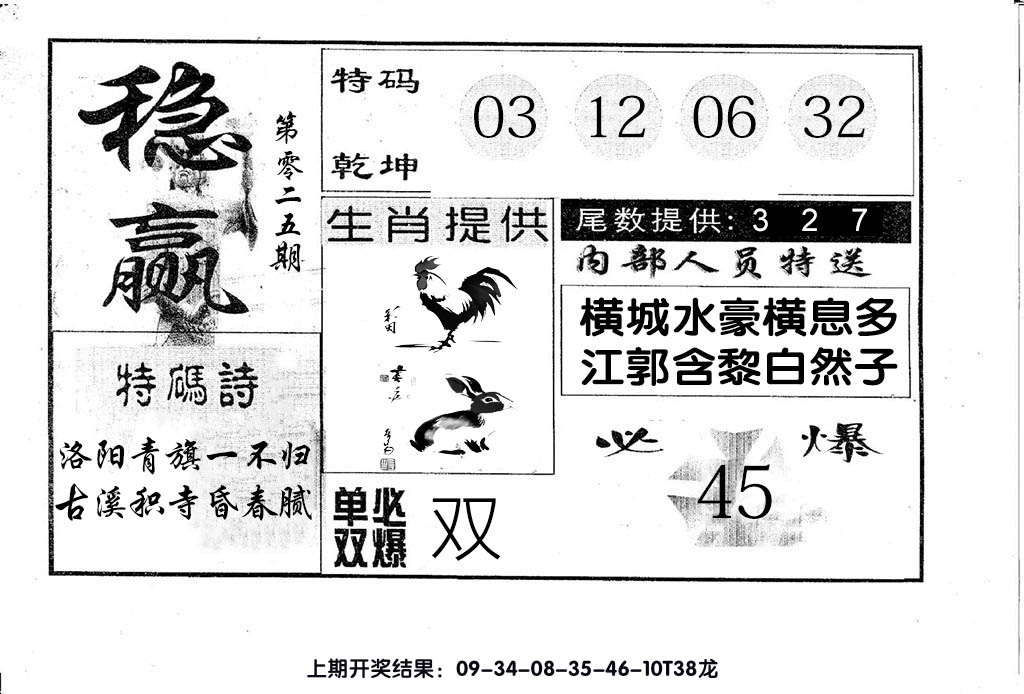 稳赢
第零二五期
特码诗
洛阳青旗一不归
古溪积寺昏春腻
特码
乾坤
03 12 06 32
生肖提供
单双必爆
双
尾数提供: 3 2 7
内部人员特送
横城水豪横息多
江郭含黎白然子
必爆
45
上期开奖结果：09-34-08-35-46-10T38龙